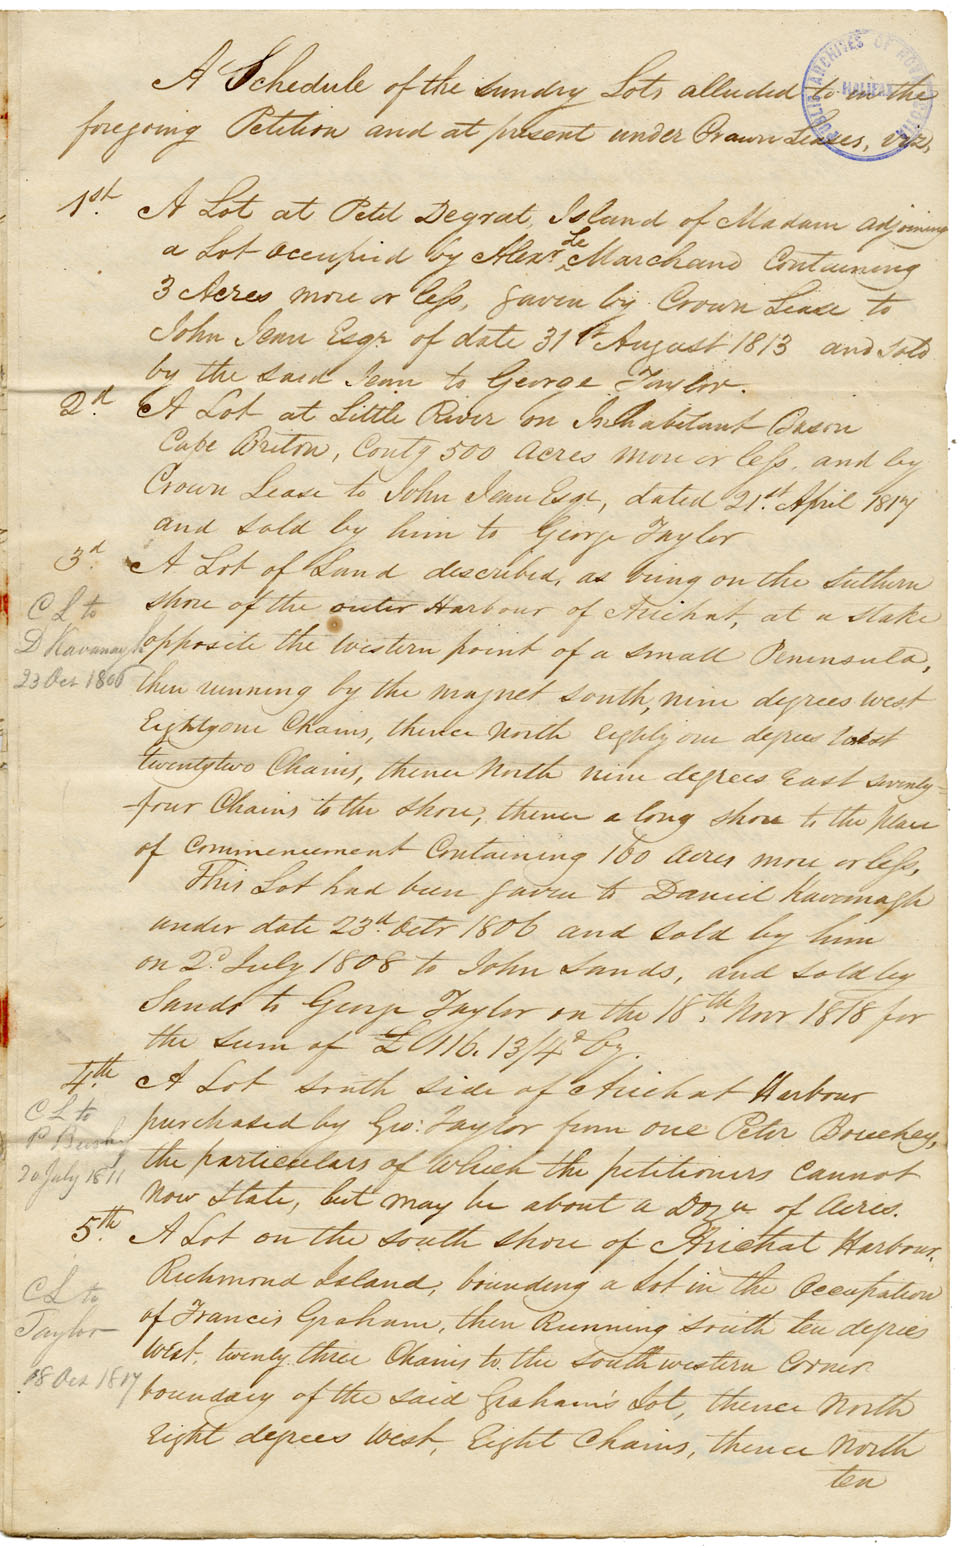 PUBLIC ARCHIVES OF NOVA SCOTIA
HALIFAX
A Schedule of the sundry Lots alluded to in the
foregoing Petition and at present under Crown Leases, viz,
1st. A Lot at Petit Degrat, Island of Madam adjoining
a Lot occupied by Alexr Le Marchand Containing
3 Acres more or less, given by Crown Lease to
John Jean Esqr of date 31st August 1813 and sold
by the said Jean to George Taylor.
2d. A Lot at Little River on Inhabitant Bason
Cape Briton, Contg 500 acres more or less, and by
Crown Lease to John Jean Esqr, dated 21st. April 1817
and sold by him to George Taylor
3d A Lot of Land described, as being on the suthern
shore of the outer Harbour of Arichat, at a stake
opposite the western point of a small Peninsula,
then running by the magnet south, nine degrees west
Eightyone Chains, thence North Eighty one degrees West
twentytwo Chains, thence North nine degrees East seventy-
four Chains to the shore, thence a long shore to the place
of Commencement Containing 160 acres more or less,
This Lot had been given to Daniel Kavanagh
under date 23d. Octr 1806 and sold by him
on 2d July 1808 to John Sands, and sold by
Sands to George Taylor on the 18th. Novr 1818 for
the sum of £ 116. 13/4d Cy.
C L to
D Kavanagh
23 Oct 1806
4th. A Lot south side of Arichat Harbour
purchased by Geo: Taylor from one Peter Bouchey,
the particulars of which the petitioners cannot
now state, but may be about a Dozn of Acres.
C L to
P Bushy
20 July 1811
5th. A Lot on the south shore of Arichat Harbour.
Richmond Island, bounding a Lot in the Occupation
of Francis Graham, then Running south ten degrees
west, twenty three Chains to the southwestern Corner
boundary of the said Graham's Lot, thence North
Eight degrees West, Eight Chains, thence North
ten
C L to
Taylor
18 Oct 1817